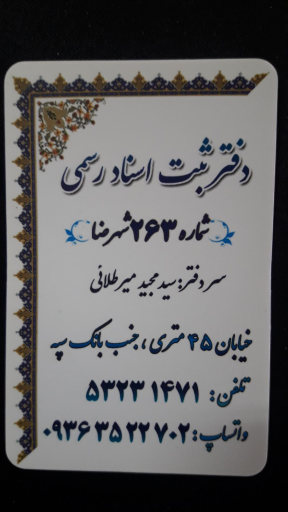 دفتر ثبت اسناد رسمی
شماره ۲۶۳ شهرضا
سردفتر: سید مجید میرطلائی
خیابان ۴۵ متری، جنب بانک سپه
تلفن: ۵۳۲۳۱۴۷۱
واتساپ: ۰۹۳۶۳۵۲۲۷۰۲